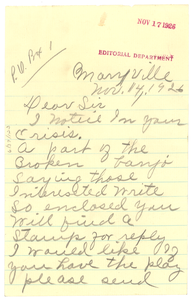 NOV 17 1926
EDITORIAL DEPARTMENT
P.O. Bx 1
Maryville
Nov. 14, 1926
Dear Sir
I Notice In your
Crisis.
A part of the
Broken Banjo
Saying those
Interested Write
So enclosed you
Will find a
Stamp for reply
I would like
you have the play
please send